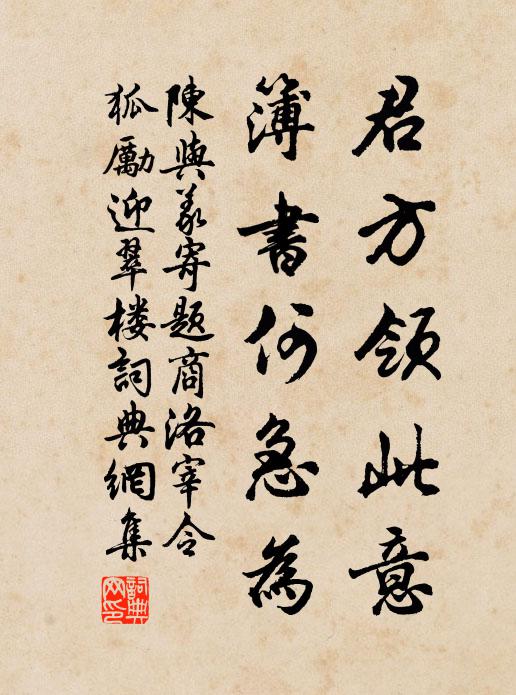 君方领此意
簿書何急為
陳與義寄题商洛宰令
狐勵迎翠楼詞典網集
詞典
网印